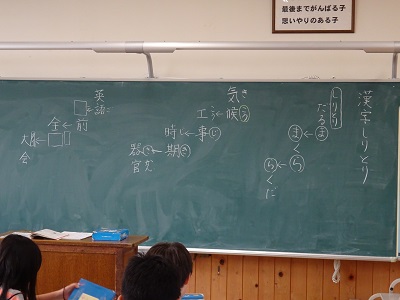 最後までがんばる子
思いやりのある子
漢字しりとり
しりとり
だるま
まくら
らくだ
気き
候こう
工こう
事じ
時じ
期き
器き
官かん
英語
前
全
大
会